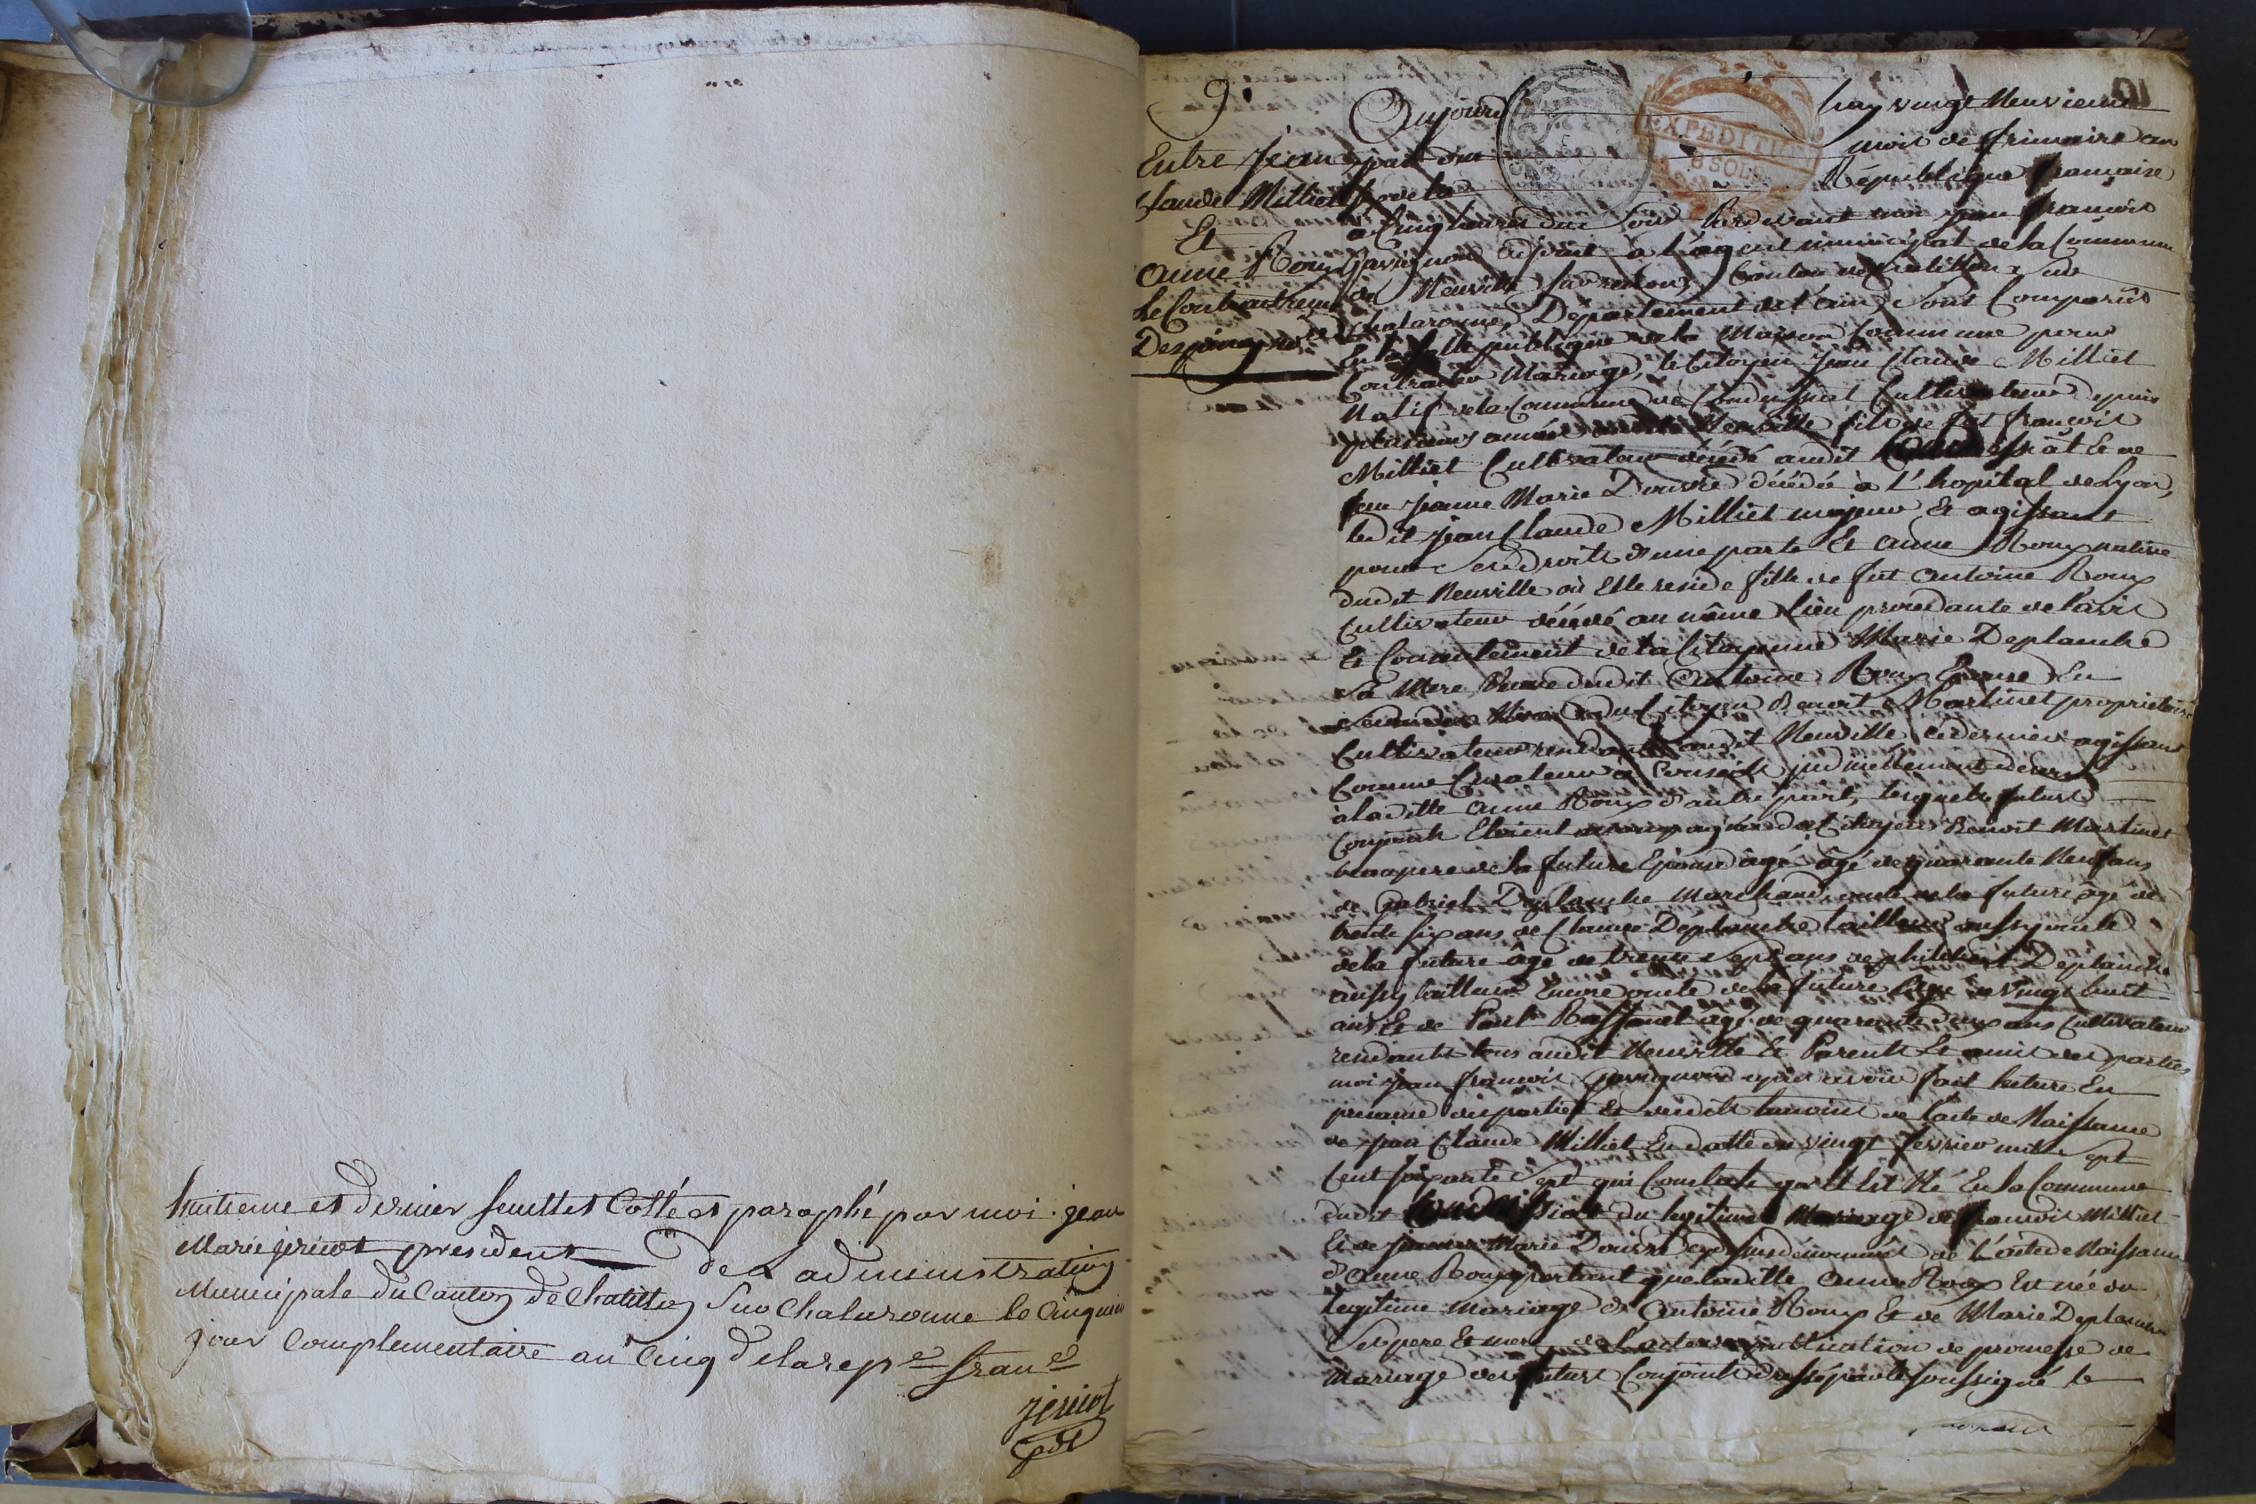 huitieme et dernier feuillet Cotté et paraphé par moi jean
Marie jericot president de L administration
Municipale du Canton de Chatillon Sur Chalaronne le Cinquieme
jour Complementaire an Cinq de la rep.e fran.e
Jericot
pdt
9.
Entre Jean
Claude Milliet
Et
anne Roux
EXPEDITION
8 SOLS
Aujourd huy vingt Neuvieme
mois de frimaire an
République française
a Cinq heures du Soir Pardevant moi jean françois
Gavignon adjoint à l'agent municipal de la Commune
de Neuville Canton de Chatillon sur
Chalaronne, Département de l'ain, Sont Comparus
En la Salle publique de la Maison Commune pour
Contracter Mariage, le Citoyen Jean Claude Milliet
Natif de la Commune de Condeissiat Cultivateur depuis
plusieurs années Neuville fils de fut françois
Milliet Cultivateur décédé audit Condeissiat Et de
feue Jeanne Marie décédée à L'hopital de Lyon,
ledit jean Claude Milliet majeur Et agissant
pour Ses droits d'une parte Et anne Roux native
dudit Neuville où Elle reside fille de fut Antoine Roux
Cultivateur décédé au même Lieu procedante de l'avis
Et Consentement de la Citoyenne Marie Deplanche
Sa Mere Veuve dudit Antoine Roux Epouse En
du Citoyen Benoit Martinet proprietaire
Cultivateur audit Neuville, cedernier agissant
Comme Curateur
à laditte anne Roux d'autre part, lesquels futurs
Conjoints Etoient accompagnés des Citoyens Benoit Martinet
beaupere de la future Epouse âgé âgé de quarante Neuf ans
de Gabriel Deplanche Marchand, oncle de la future âgé de
trente six ans de Claude Deplanche tailleur aussy oncle
de la future âgé de trente sept ans de philibert Deplanche
aussy tailleur Encore oncle de la future âgé de vingt huit
ans Et de Paul âgé de quarante deux ans Cultivateur
residants tous audit Neuville Et Parents Et amis des parties
moi jean françois Gavignon après avoir fait lecture En
presence des parties Et desdits temoins de l'acte de Naissance
de jean Claude Milliet En datte du vingt fevrier mille sept
Cent soixante Sept qui Constate qu'il Est Né En la Commune
dudit Condeissiat du legitime Mariage de françois Milliet
Et de Jeanne Marie cydessus dénommés de L'acte de Naissance
d'anne Roux portant que laditte anne Roux Est née du
legitime mariage de Antoine Roux Et de Marie Deplanche
Ses pere Et mere de l'acte de publication de promesse de
Mariage des futurs Conjoints soussigné le